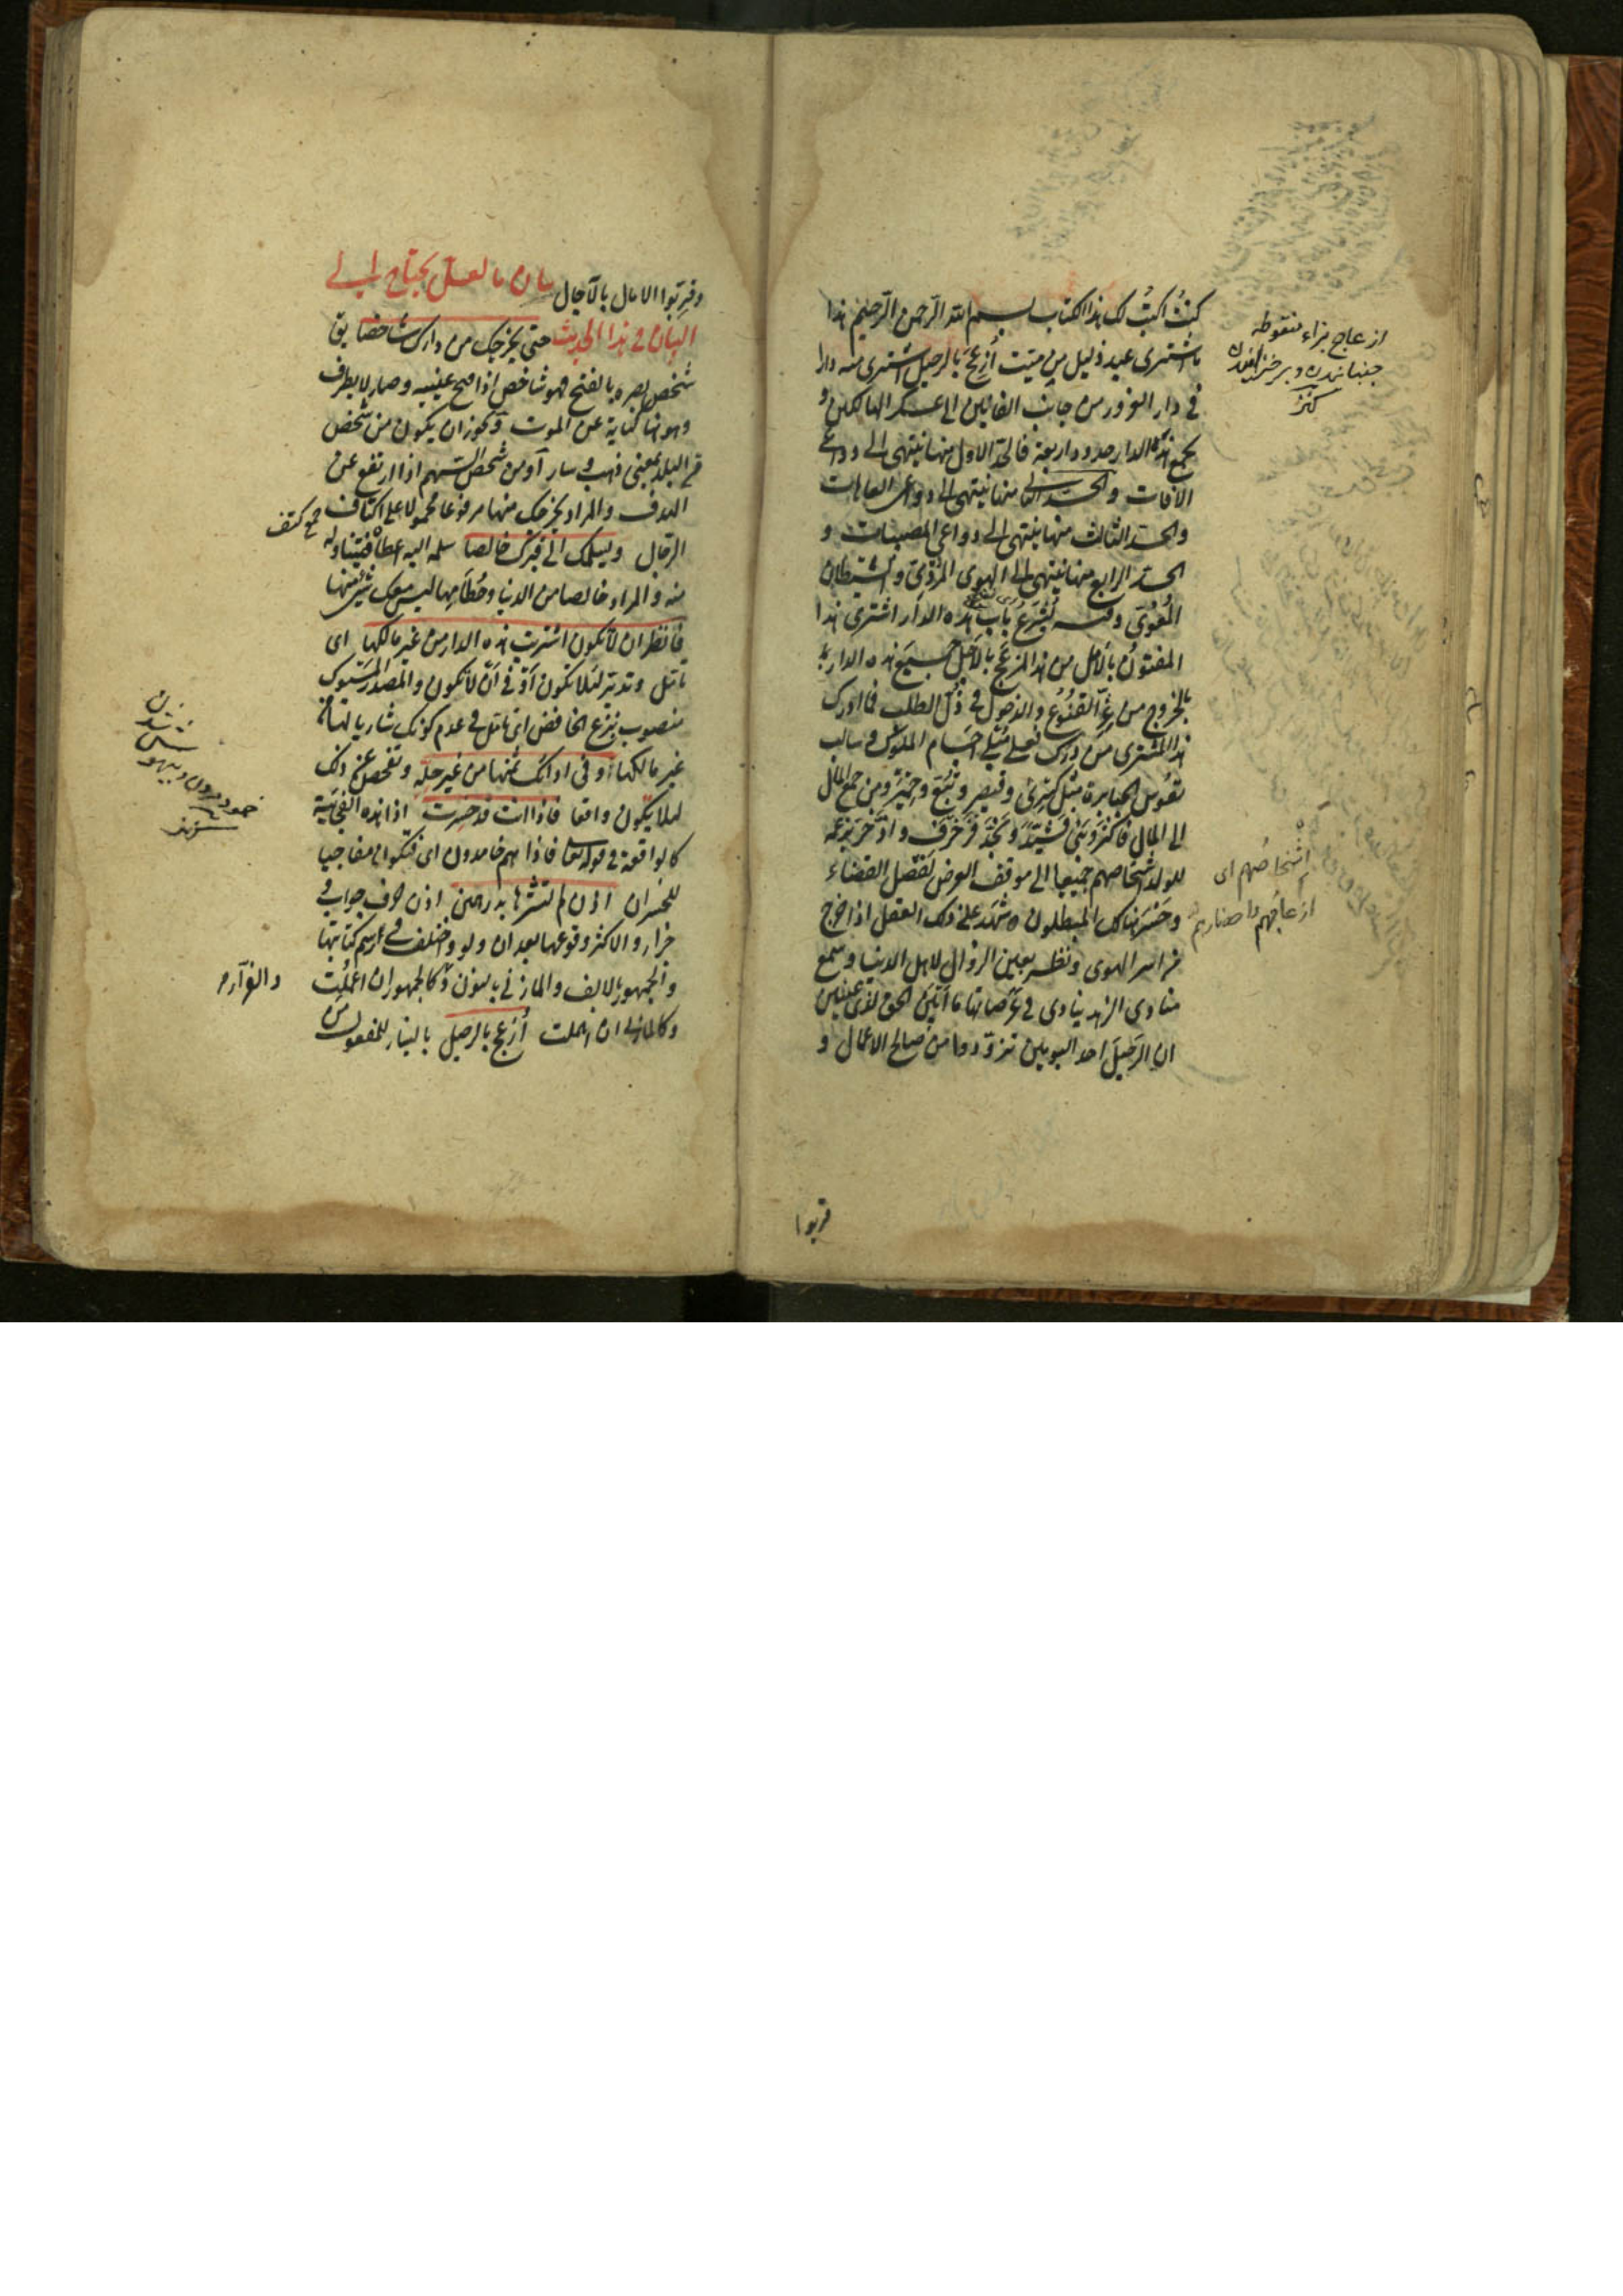 كنتُ اكتبُ لك هذا الكتاب بسم الله الرّحمن الرّحيم هذا
ما اشترى عبد ذليل من ميّت اُزعِجَ بالرحيل اشترى منه دارا
في دار الغرور من جانب الفانين الى عسكر الهالكين و
يجمع هذه الدار حدود اربعة فالحدّ الاول منها ينتهي الى دواعي
الافات والحدّ الثاني منها ينتهي الى دواعي العاهات
والحدّ الثالث منها ينتهي الى دواعي المصيبات و
الحدّ الرابع منها ينتهي الى الهوى المُرْدي والشيطان
المُغْوي وفيه يُشرَعُ باب هذه الدار اشترى هذا
المفتونُ بالامل من هذا المزعَج بالاَجَل جميعَ هذه الدار
بالخروج من عِزّ القُنُوع والدخول في ذُلّ الطلب فما ادرك
هذا المشترى من دَرَك فعلى مُبلي اجسام الملوك وسالب
نفوس الجبابرة مثل كسرى وقيصر وتُبّع وحِمْيَر ومن جمع المال
الى المال فاكثر وبنى فشيّد ونجّد فزخرف وادّخر بزعمه
للولد اشخاصهم جميعا الى موقف العرض لفصل القضاء
وخسر هنالك المبطلون شهد على ذلك العقل اذا خرج
من اسر الهوى ونظر بعين الزوال لاهل الدنيا وسمع
منادى الزهد ينادى في عَرَصاتها ما اَبْيَنَ الحق لذى عينين
ان الرحيلَ احد اليومين تزوّدوا من صالح الاعمال و
قربوا
ازعاج بزاء منقوطه
جنبانيدن و برخيزانيدن
كنز
اشخاصُهم اى
ازعاجُهم واحضارهم
وقرّبوا الامال بالآجال بيان ما لعلّه يحتاج الى
البيان في هذا الحديث حتى يخرجك من دارك شاخصا يق
شخص بصره بالفتح فهو شاخص اذا فتح عينيه وصار لا يطرف
وهو هنا كناية عن الموت ويجوز ان يكون من شخص
من البلد بمعنى ذهب وسار او من شخص السّهم اذا ارتفع عن
الهدف والمراد يخرجك منها مرفوعا محمولا على اكتاف
جمع كتف
الرجال ويسلمك الى قبرك خالصا سلمه اليه اعطاه فتناوله
منه والمراد خالصا من الدنيا وحُطَامِها ليس معك شئ منها
فانظر ان لا تكون اشتريت هذه الدار من غير مالكها اى
تامّل وتدبّر لئلا تكون او في اَنْ لا تكون والمصدر المسبوك
منصوب بنزع الخافض اى تامّل في عدم كونك شاريا لها من
غير مالكها او في ادائك ثمنها من غير حلّه وتفحص عن ذلك
لئلا يكون واقعا فاذا انت قد خسرت اذا هذه الفجائية
كالواقعة في قوله تعا فاذا هم خامدون اى فتكون مفاجيا
خمود مردن و بيهوش شدن
كنز
للخسران اذن لم تشترها بدرهمين اذن حرف جواب و
جزاء والاكثر وقوعها بعد ان ولو واختلف في رسم كتابتها
والجمهور بالالف والمازني بالنون والفرّاء كالجمهور ان اعملت
وكالمازنى ان اهملت اُزعج بالرحيل بالبناء للمفعول من